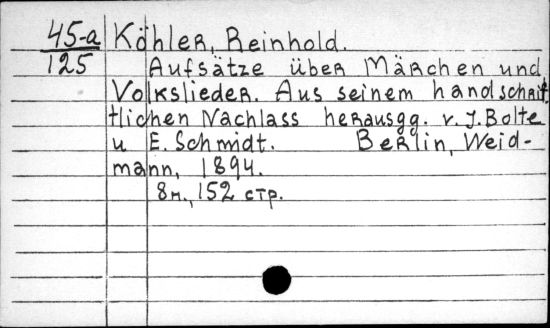 45-a Köhler, Reinhold.
125 Aufsätze über Märchen und
Volkslieder. Aus seinem handschrift
tlichen Nachlass herausgg. v. J. Bolte
u E. Schmidt. Berlin, Weid-
mann, 1894.
8н., 152 стр.